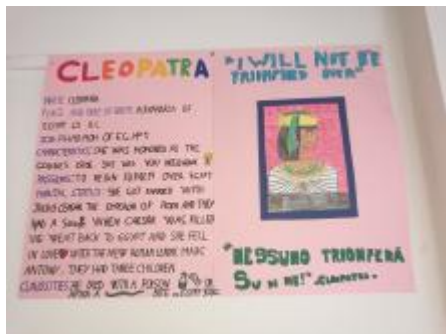 CLEOPATRA
NAME: CLEOPATRA
PLACE AND DATE OF BIRTH: ALEXANDRIA OF
EGYPT 69 B.C.
JOB: PHARAOH OF EGYPT
CHARACTERISTICS: SHE WAS HONORED AS THE
GODDESS ISIDE. SHE WAS VERY
TO REIGN EXPAND OVER EGYPT
MARITAL STATUS: SHE GOT MARRIED WITH
JULIUS CAESAR THE EMPEROR OF ROME AND THEY
HAD A SON. WHEN CAESAR WAS KILLED
WENT BACK TO EGYPT AND SHE FELL
IN LOVE WITH THE NEW ROMAN LEADER MARC
ANTONY. THEY HAD THREE CHILDREN
CURIOSITIES: DIED WITH A POISON
"I WILL NOT BE
TRIUMPHED OVER"
"NESSUNO TRIONFERÁ
SU DI ME!" -CLEOPATRA-